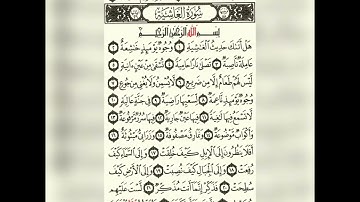 سُورَةُ الغَاشِيَةِ
بِسْمِ اللَّهِ الرَّحْمَٰنِ الرَّحِيمِ
هَلْ أَتَىٰكَ حَدِيثُ ٱلْغَٰشِيَةِ ١ وُجُوهٌ يَوْمَئِذٍ خَٰشِعَةٌ ٢
عَامِلَةٌ نَّاصِبَةٌ ٣ تَصْلَىٰ نَارًا حَامِيَةً ٤ تُسْقَىٰ مِنْ عَيْنٍ ءَانِيَةٍ ٥
لَّيْسَ لَهُمْ طَعَامٌ إِلَّا مِن ضَرِيعٍ ٦ لَّا يُسْمِنُ وَلَا يُغْنِي مِن جُوعٍ ٧
وُجُوهٌ يَوْمَئِذٍ نَّاعِمَةٌ ٨ لِّسَعْيِهَا رَاضِيَةٌ ٩ فِي جَنَّةٍ عَالِيَةٍ ١٠
لَّا تَسْمَعُ فِيهَا لَٰغِيَةً ١١ فِيهَا عَيْنٌ جَارِيَةٌ ١٢ فِيهَا سُرُرٌ مَّرْفُوعَةٌ ١٣
وَأَكْوَابٌ مَّوْضُوعَةٌ ١٤ وَنَمَارِقُ مَصْفُوفَةٌ ١٥ وَزَرَابِيُّ مَبْثُوثَةٌ ١٦
أَفَلَا يَنظُرُونَ إِلَى ٱلْإِبِلِ كَيْفَ خُلِقَتْ ١٧ وَإِلَى ٱلسَّمَآءِ كَيْفَ
رُفِعَتْ ١٨ وَإِلَى ٱلْجِبَالِ كَيْفَ نُصِبَتْ ١٩ وَإِلَى ٱلْأَرْضِ كَيْفَ
سُطِحَتْ ٢٠ فَذَكِّرْ إِنَّمَآ أَنتَ مُذَكِّرٌ ٢١ لَّسْتَ عَلَيْهِم